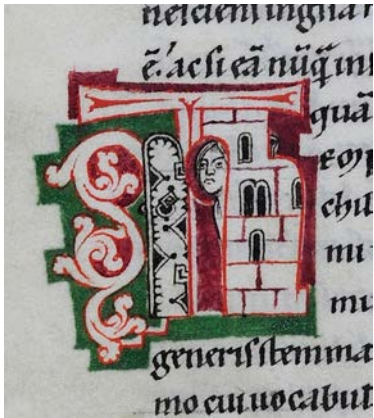 nesciens ingna
ē. ac si eā nūq̄ in
quā
chil
mi
mu
generis stemma
mo cui uocabul